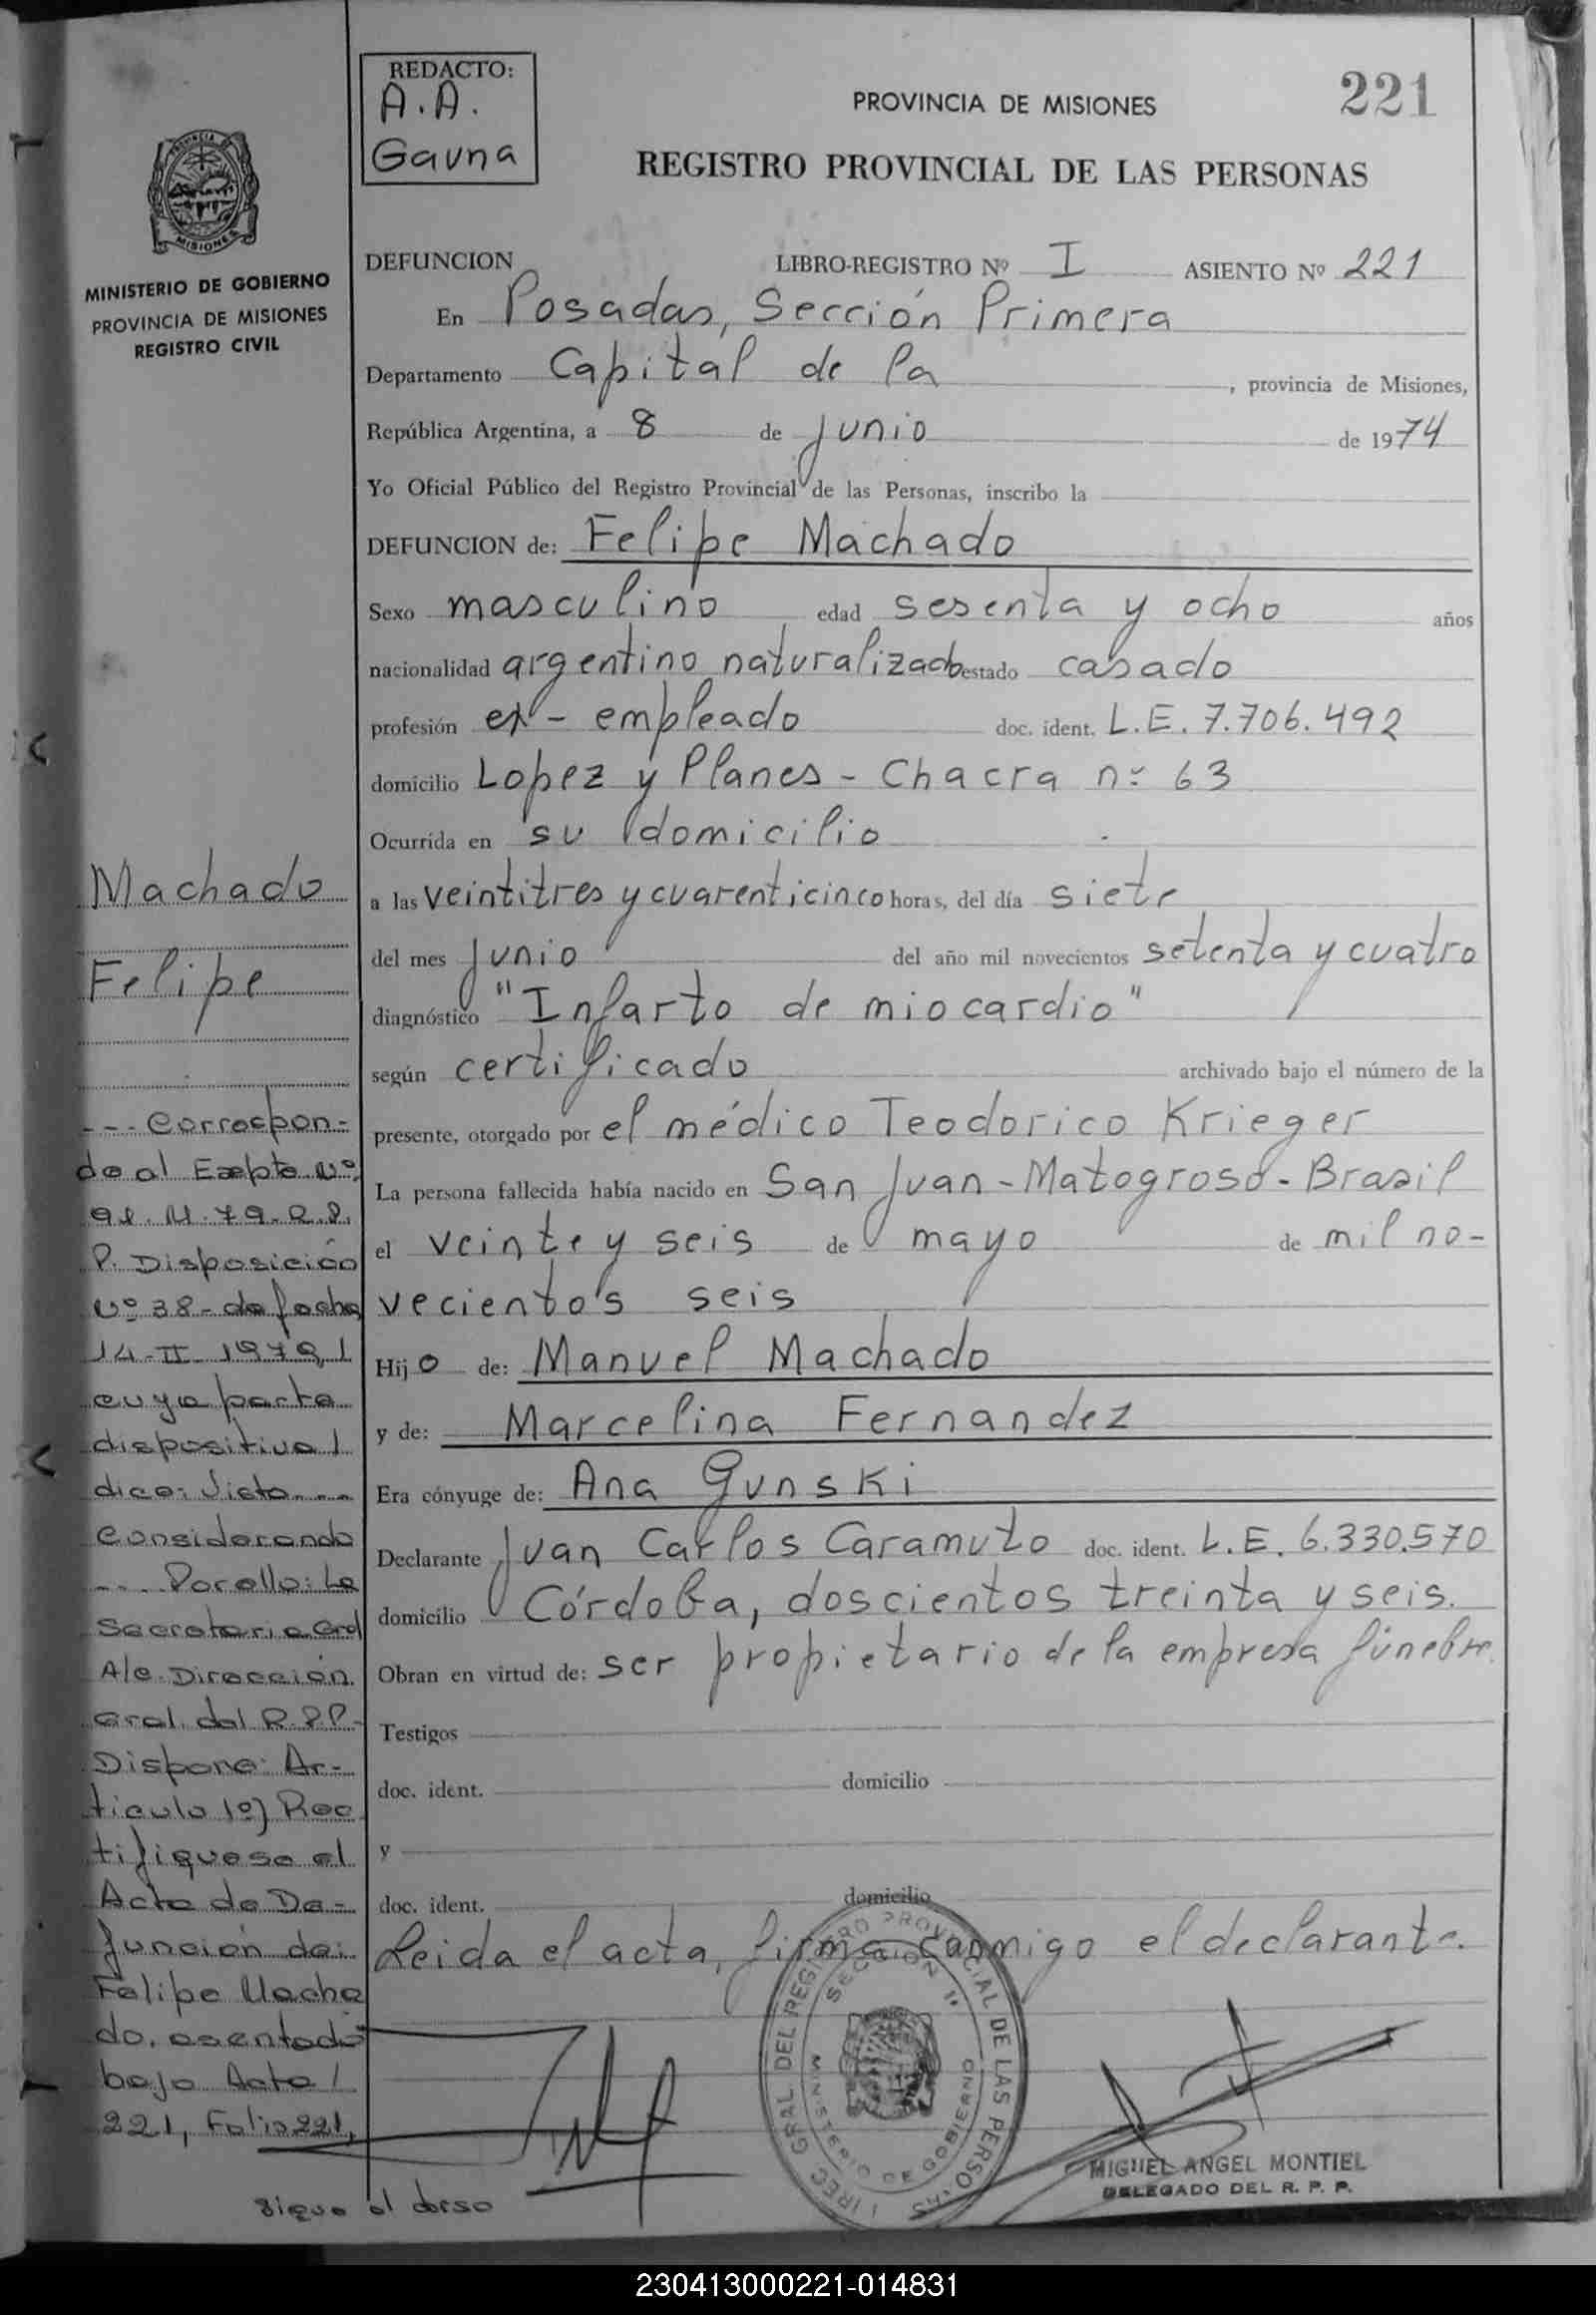 REDACTO:
A. A.
Gauna
PROVINCIA DE MISIONES
221
REGISTRO PROVINCIAL DE LAS PERSONAS
PROVINCIA
MISIONES
MINISTERIO DE GOBIERNO
PROVINCIA DE MISIONES
REGISTRO CIVIL
DEFUNCION LIBRO-REGISTRO Nº I ASIENTO Nº 221
En Posadas, Sección Primera
Departamento Capital de la , provincia de Misiones,
República Argentina, a 8 de junio de 1974
Yo Oficial Público del Registro Provincial de las Personas, inscribo la
DEFUNCION de: Felipe Machado
Sexo masculino edad sesenta y ocho años
nacionalidad argentino naturalizado estado casado
profesión ex-empleado doc. ident. L.E. 7.706.492
domicilio Lopez y Planes - Chacra nº 63
Ocurrida en su domicilio
a las veintitres y cuarenticinco horas, del día siete
del mes junio del año mil novecientos setenta y cuatro
diagnóstico "Infarto de miocardio"
según certificado archivado bajo el número de la
presente, otorgado por el médico Teodorico Krieger
La persona fallecida había nacido en San Juan - Matogroso - Brasil
el veinte y seis de mayo de mil no-
vecientos seis
Hijo de: Manuel Machado
y de: Marcelina Fernandez
Era cónyuge de: Ana Gunski
Declarante Juan Carlos Caramuto doc. ident. L.E. 6.330.570
domicilio Córdoba, doscientos treinta y seis.
Obran en virtud de: ser propietario de la empresa fúnebre.
Testigos
doc. ident. domicilio
y
doc. ident. domicilio
Leida el acta, firma conmigo el declarante.
Machado
Felipe
--- Correspon-
de al Expte Nº
91-M-79-R.P.
P. Disposición
Nº 38 - de fecha
14-II-1979,/
cuya parte
dispositiva/
dice: Visto...
Considerando
.... Por ello: La
Secretaria Gral
A/c. Dirección
Gral. del R.P.P.-
Dispone: Ar-
ticulo 1º) Rec
tifiquese el
Acta de De-
función de:
Felipe Macha
do, asentado
bajo Acta/
221, Folio 221,
Sigue al dorso
DIREC. GRAL. DEL REGISTRO PROVINCIAL DE LAS PERSONAS
SECCION 1ª
MINISTERIO DE GOBIERNO
MIGUEL ANGEL MONTIEL
DELEGADO DEL R. P. P.
230413000221-014831